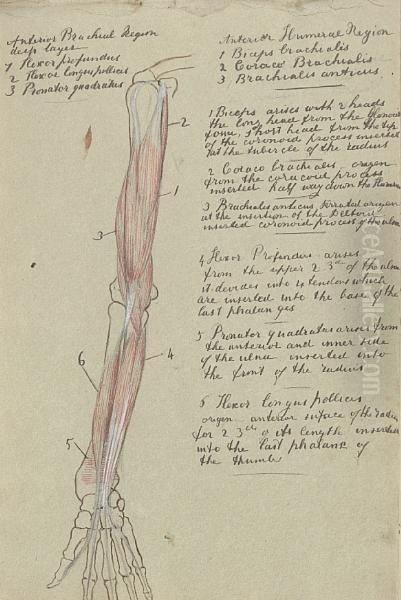 Anterior Brachial Region
deep layer
1 Flexor profundus
2 Flexor longus pollicis
3 Pronator quadratus
Anterior Humeral Region
1 Biceps brachialis
2 Coraco Brachialis
3 Brachialis anticus
1 Biceps arises with 2 heads
the long head from the Glenoid
short head from the tip
of the coronoid process inserted
at the tubercle of the radius
2 Coraco brachialis origen
from the coracoid process
inserted half way down the
3 Brachialis anticus, origen
at the insertion of the Deltoid
inserted coronoid process of the ulna
4 Flexor Profundus arises
from the upper 2 3rd of the ulna
it devides into 4 tendons which
are inserted into the base of the
last phalanges
5 Pronator quadratus arises from
the anterior and inner side
of the ulna inserted into
the front of the radius
6 Flexor longus pollicis
origen anterior surface of the radius
for 2 3rds o its length inserted
into the last phalanx of
the thumb
2
1
3
4
6
5
alamy